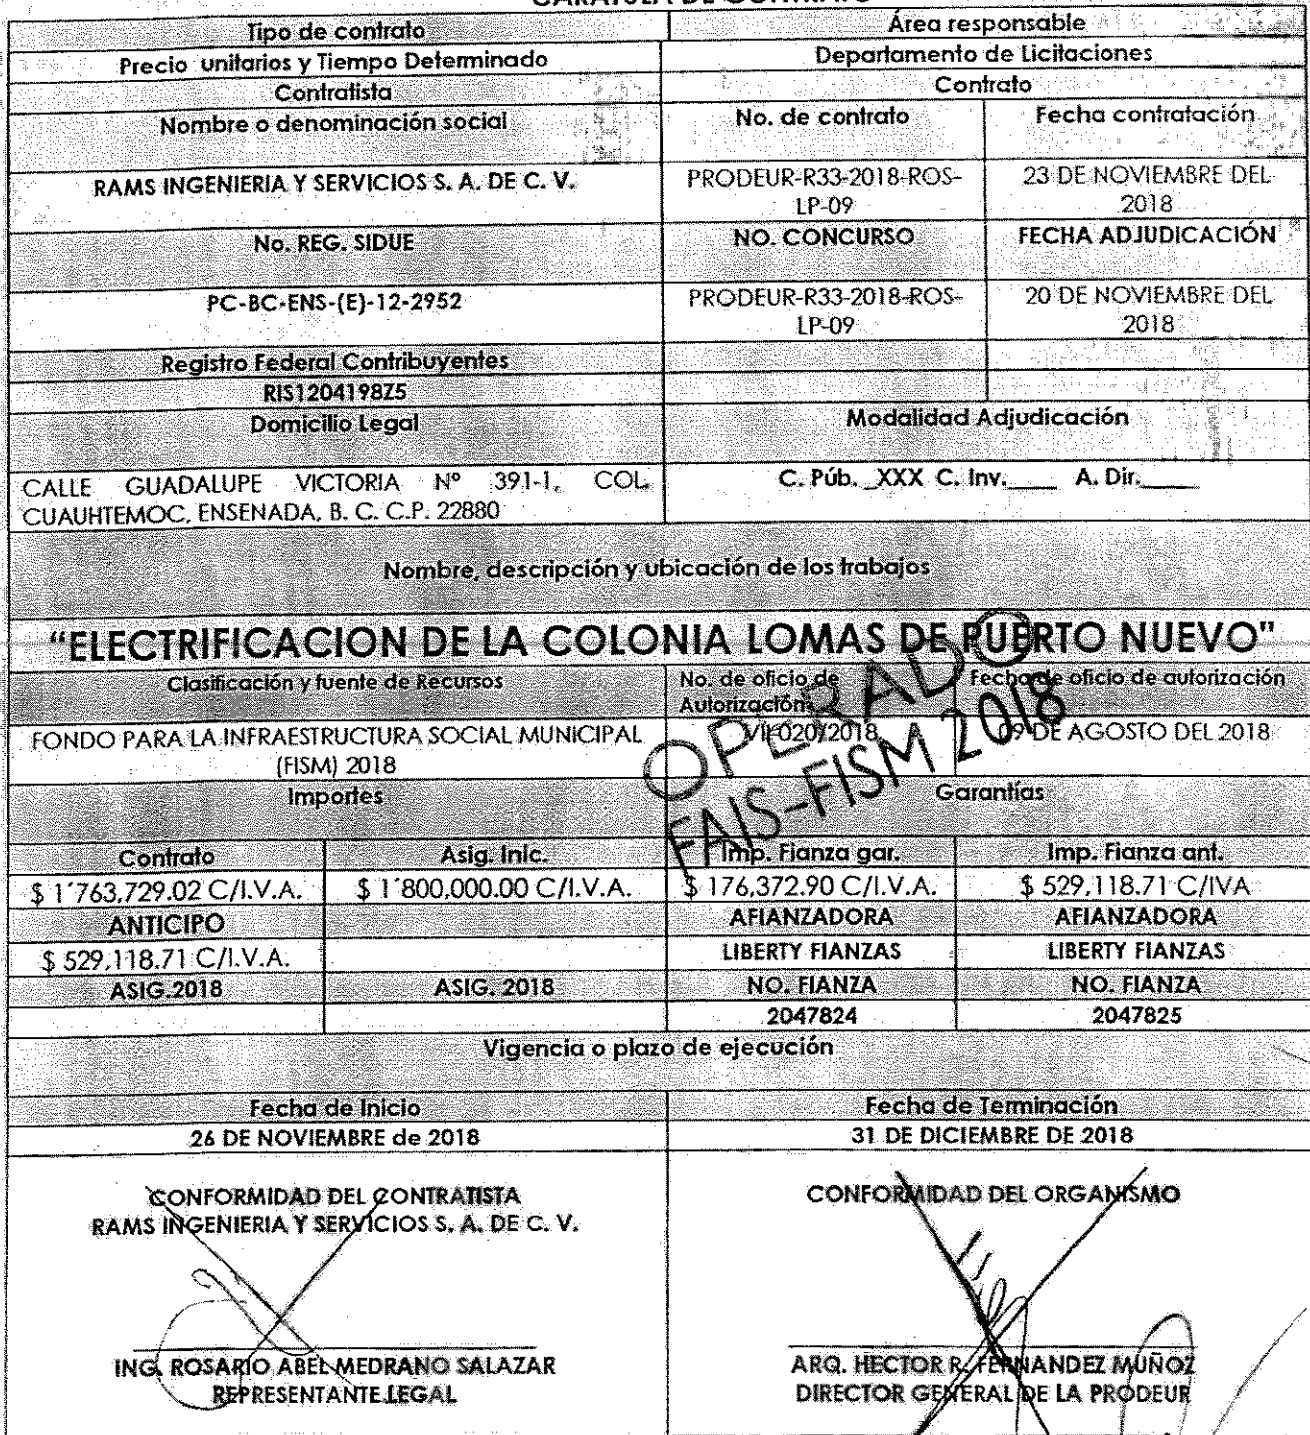 CARATULA DE CONTRATO
Tipo de contrato
Área responsable
Precio unitarios y Tiempo Determinado
Departamento de Licitaciones
Contratista
Contrato
Nombre o denominación social
No. de contrato
Fecha contratación
RAMS INGENIERIA Y SERVICIOS S. A. DE C. V.
PRODEUR-R33-2018-ROS-
LP-09
23 DE NOVIEMBRE DEL
2018
No. REG. SIDUE
NO. CONCURSO
FECHA ADJUDICACIÓN
PC-BC-ENS-(E)-12-2952
PRODEUR-R33-2018-ROS-
LP-09
20 DE NOVIEMBRE DEL
2018
Registro Federal Contribuyentes
RIS1204198Z5
Domicilio Legal
Modalidad Adjudicación
CALLE GUADALUPE VICTORIA Nº 391-1, COL.
CUAUHTEMOC, ENSENADA, B. C. C.P. 22880
C. Púb. _XXX C. Inv.____ A. Dir.____
Nombre, descripción y ubicación de los trabajos
"ELECTRIFICACION DE LA COLONIA LOMAS DE PUERTO NUEVO"
Clasificación y fuente de Recursos
No. de oficio de
Autorización
Fecha de oficio de autorización
FONDO PARA LA INFRAESTRUCTURA SOCIAL MUNICIPAL
(FISM) 2018
VII-020/2018
09 DE AGOSTO DEL 2018
OPERADO
FAIS-FISM 2018
Importes
Garantías
Contrato
Asig. Inic.
Imp. Fianza gar.
Imp. Fianza ant.
$ 1´763,729.02 C/I.V.A.
$ 1´800,000.00 C/I.V.A.
$ 176,372.90 C/I.V.A.
$ 529,118.71 C/IVA
ANTICIPO
AFIANZADORA
AFIANZADORA
$ 529,118.71 C/I.V.A.
LIBERTY FIANZAS
LIBERTY FIANZAS
ASIG.2018
ASIG. 2018
NO. FIANZA
NO. FIANZA
2047824
2047825
Vigencia o plazo de ejecución
Fecha de Inicio
Fecha de Terminación
26 DE NOVIEMBRE de 2018
31 DE DICIEMBRE DE 2018
CONFORMIDAD DEL CONTRATISTA
RAMS INGENIERIA Y SERVICIOS S. A. DE C. V.
CONFORMIDAD DEL ORGANISMO
ING. ROSARIO ABEL MEDRANO SALAZAR
REPRESENTANTE LEGAL
ARQ. HECTOR R. FERNANDEZ MUÑOZ
DIRECTOR GENERAL DE LA PRODEUR